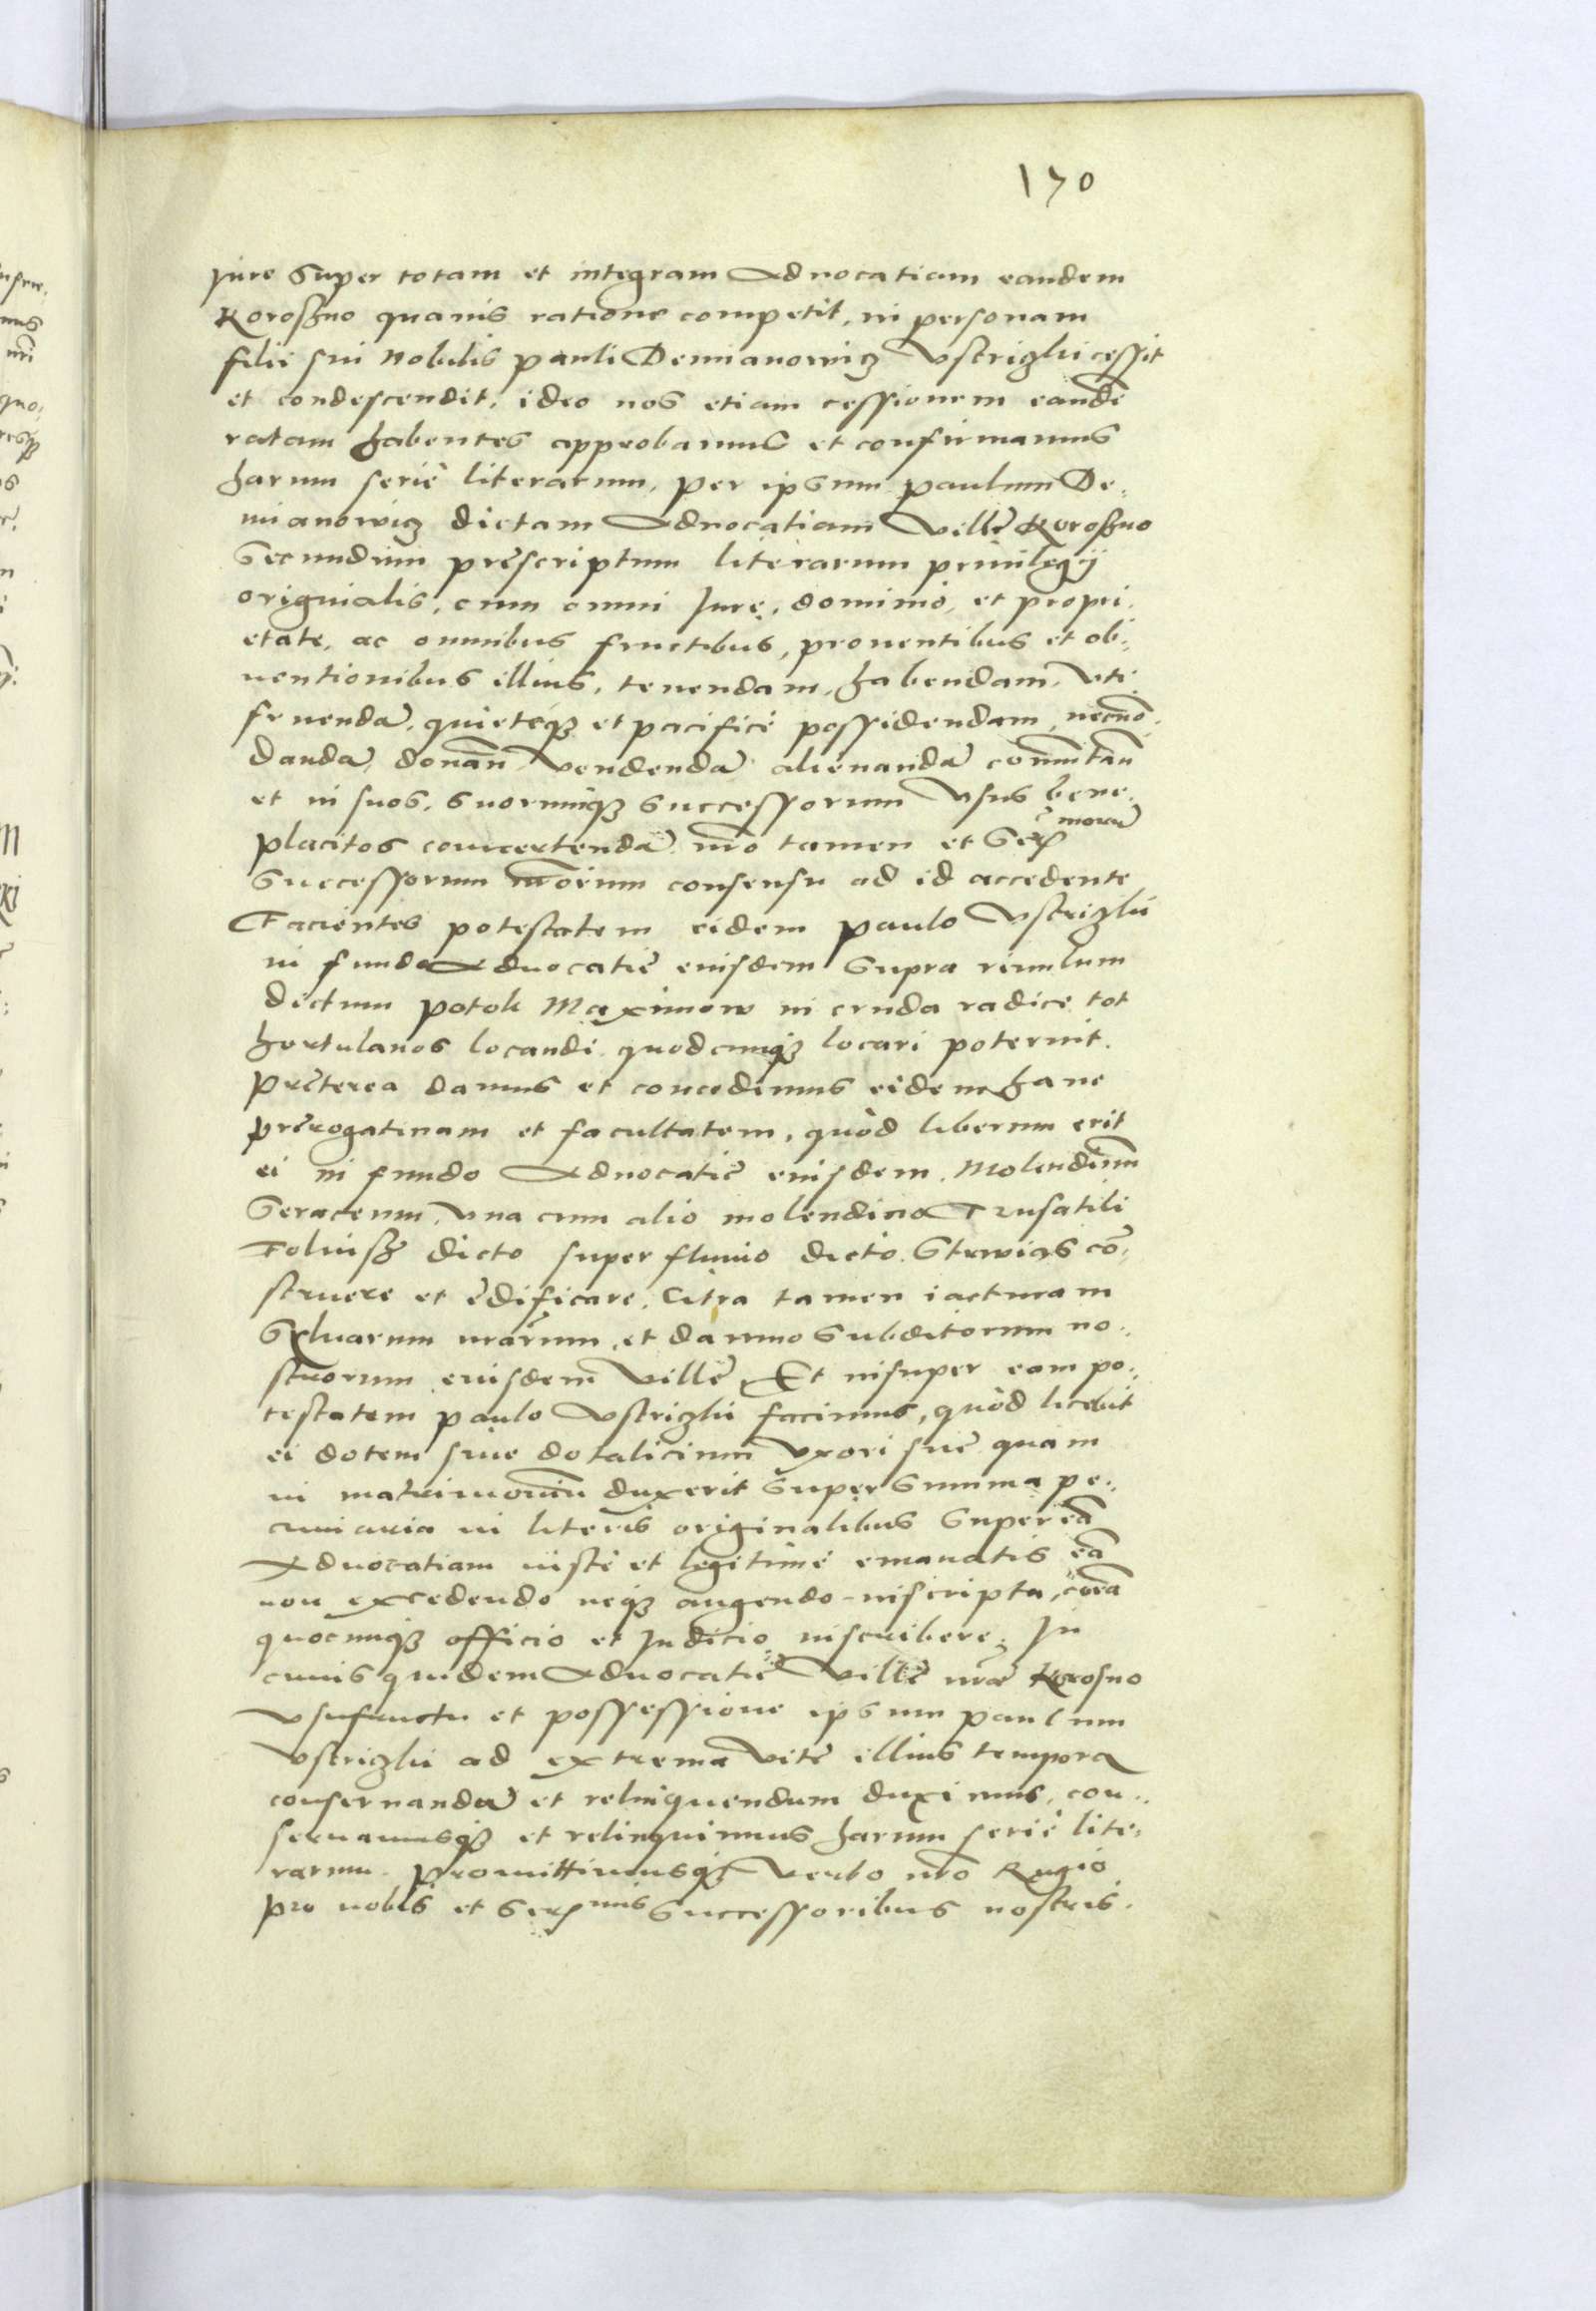 170
Jure super totam et integram Aduocatiam eandem
Koroszno quauis ratione competit, in personam
filii sui Nobilis Pauli Demianowicz Vstrizki cessit
et condescendit, ideo nos etiam cessionem eandē
ratam habentes approbamus et confirmamus
harum seriè literarum, per ipsum Paulum De,
mianowicz dictam Aduocatiam Villę Koroszno
Secundum pręscriptum literarum priuilegij
originalis, cum omni Jure, dominio, et propri,
etate, ac omnibus fructibus, prouentibus et ob,
uentionibus illius, tenendam, habendam, vti
fruendā, quietèq3 et pacificè possidendam, necnō,
dandā, donāń vendendā alienandā comutań
et in suos, suorumq3 successorum Vsus bene,
placitos conuertendā, nrō tamen et Serēmorū
Successorum nrōrum consensu ad id accedente
Facientes potestatem eidem Paulo Vstrizki
in fundo Aduocatię eiusdem supra riuulum
dictum Potok Maximow in cruda radice tot
hortulanos locandi quodcunq3 locari poterint.
Pręterea damus et concedimus eidem hanc
pręrogatiuam et facultatem, quòd liberum erit
ei in fundo Aduocatię eiusdem, Molendinū
Seraceum, vna cum alio molendino Trusatili
Foluisz dicto super fluuio dicto Strwiąs cō,
struere et ędificare, Citra tamen iacturam
Syluarum nrārum, et damno Subditorum no,
strorum eiusdem Villę. Et insuper eam po,
testatem Paulo Vstrizki facimus, quòd licebit
ei dotem siue dotalicium Vxori suę quam
in matrimoniū duxerit super summa pe,
cuniaria in literis originalibus super eā
Aduocatiam iustè et legitimè emanatis eā
non excedendo neq3 augendo inscripta, corā
quocunq3 officio et Judicio inscribere, In
cuius quidem Aduocatię Villę nrę Korosno
Vsufructu et possessione ipsum Paulum
Vstrizki ad extrema vitę illius tempora
conseruandū et relinquendum duximus, con,
seruamusq3 et relinquimus harum seriè lite,
rarum. Promittimusq3 Verbo nrō Regio
pro nobis et Serēmis Successoribus nostris.